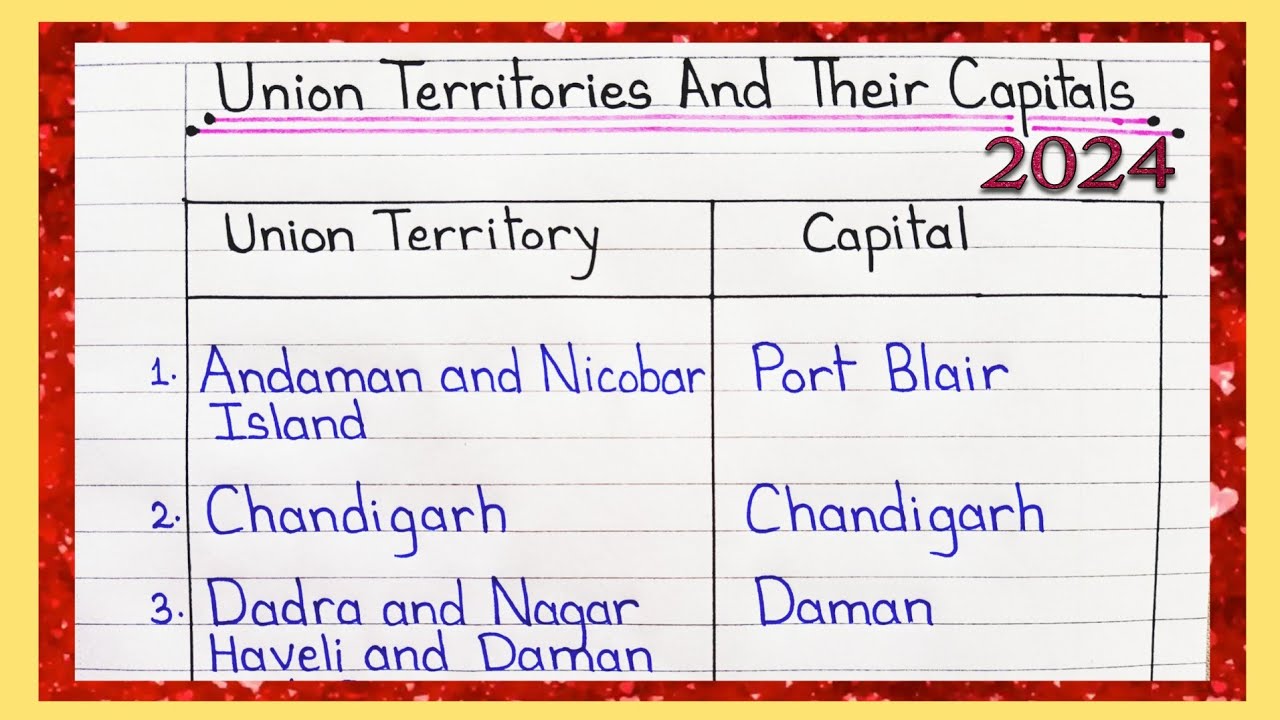 Union Territories And Their Capitals
2024
Union Territory Capital
1. Andaman and Nicobar Port Blair
Island
2. Chandigarh Chandigarh
3. Dadra and Nagar Daman
Haveli and Daman